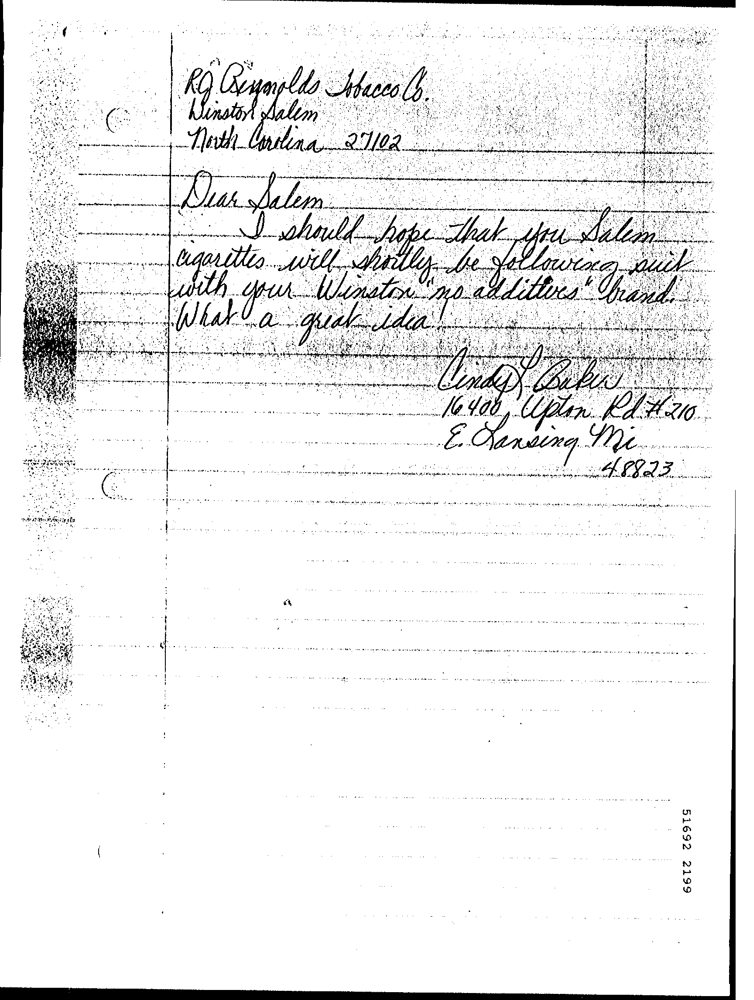 RJ Reynolds Tobacco Co.
Winston Salem
North Carolina 27102
Dear Salem
I should hope that you Salem
cigarettes will shortly be following suit
with your Winston "no additives" brand.
What a great idea!
Cindy L Baker
16400 Upton Rd #210
E. Lansing Mi
48823
51692 2199